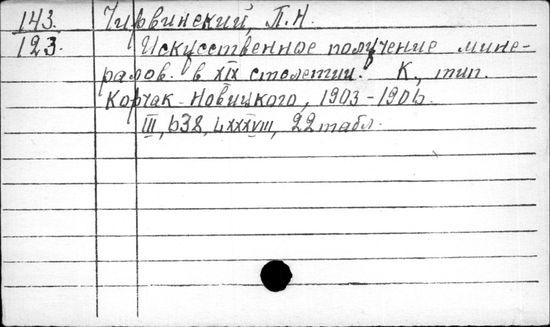 143. Чирвинский, П.Н.
123. Искусственное получение мине-
ралов в XIX столетии. К., тип.
Корчак-Новицкого, 1903-1906.
III, 638, LXXXVIII, 22 табл.